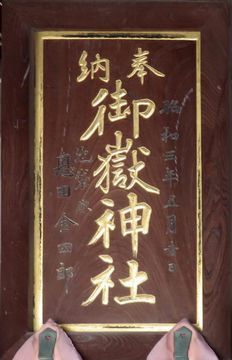 奉納
昭和三年五月吉日
御嶽神社
惠田金四郎